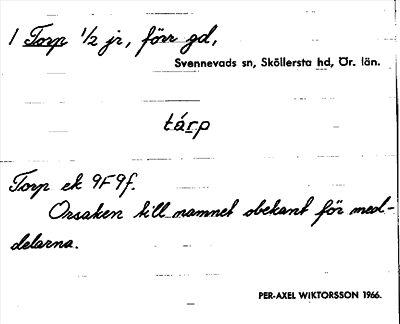 1 Torp 1/2 jr, förr gd,
Svennevads sn, Sköllersta hd, Ör. län.
tárp
Torp ek 9F9f.
Orsaken till namnet obekant för med-
delarna.
PER-AXEL WIKTORSSON 1966.